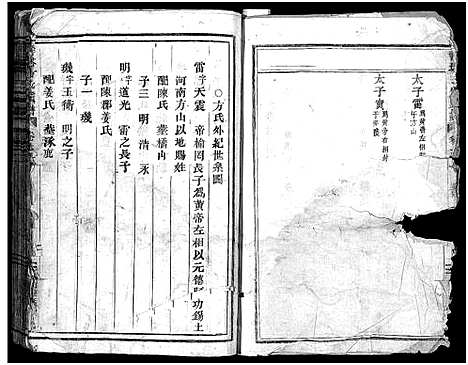 太子雷
爲黃帝左相封
于方山
太子實
爲黃帝右相封
○方氏外紀世系圖
雷字天震 帝榆罔長子爲黃帝左相以元德 功錫土
河南方山以地賜姓
配陳氏 葬橋山
子三 明 清 永
明字道光 雷之長子
配陳郡姜氏
子一 璣
璣字玉衡 明之子
配姜氏 葬涿鹿